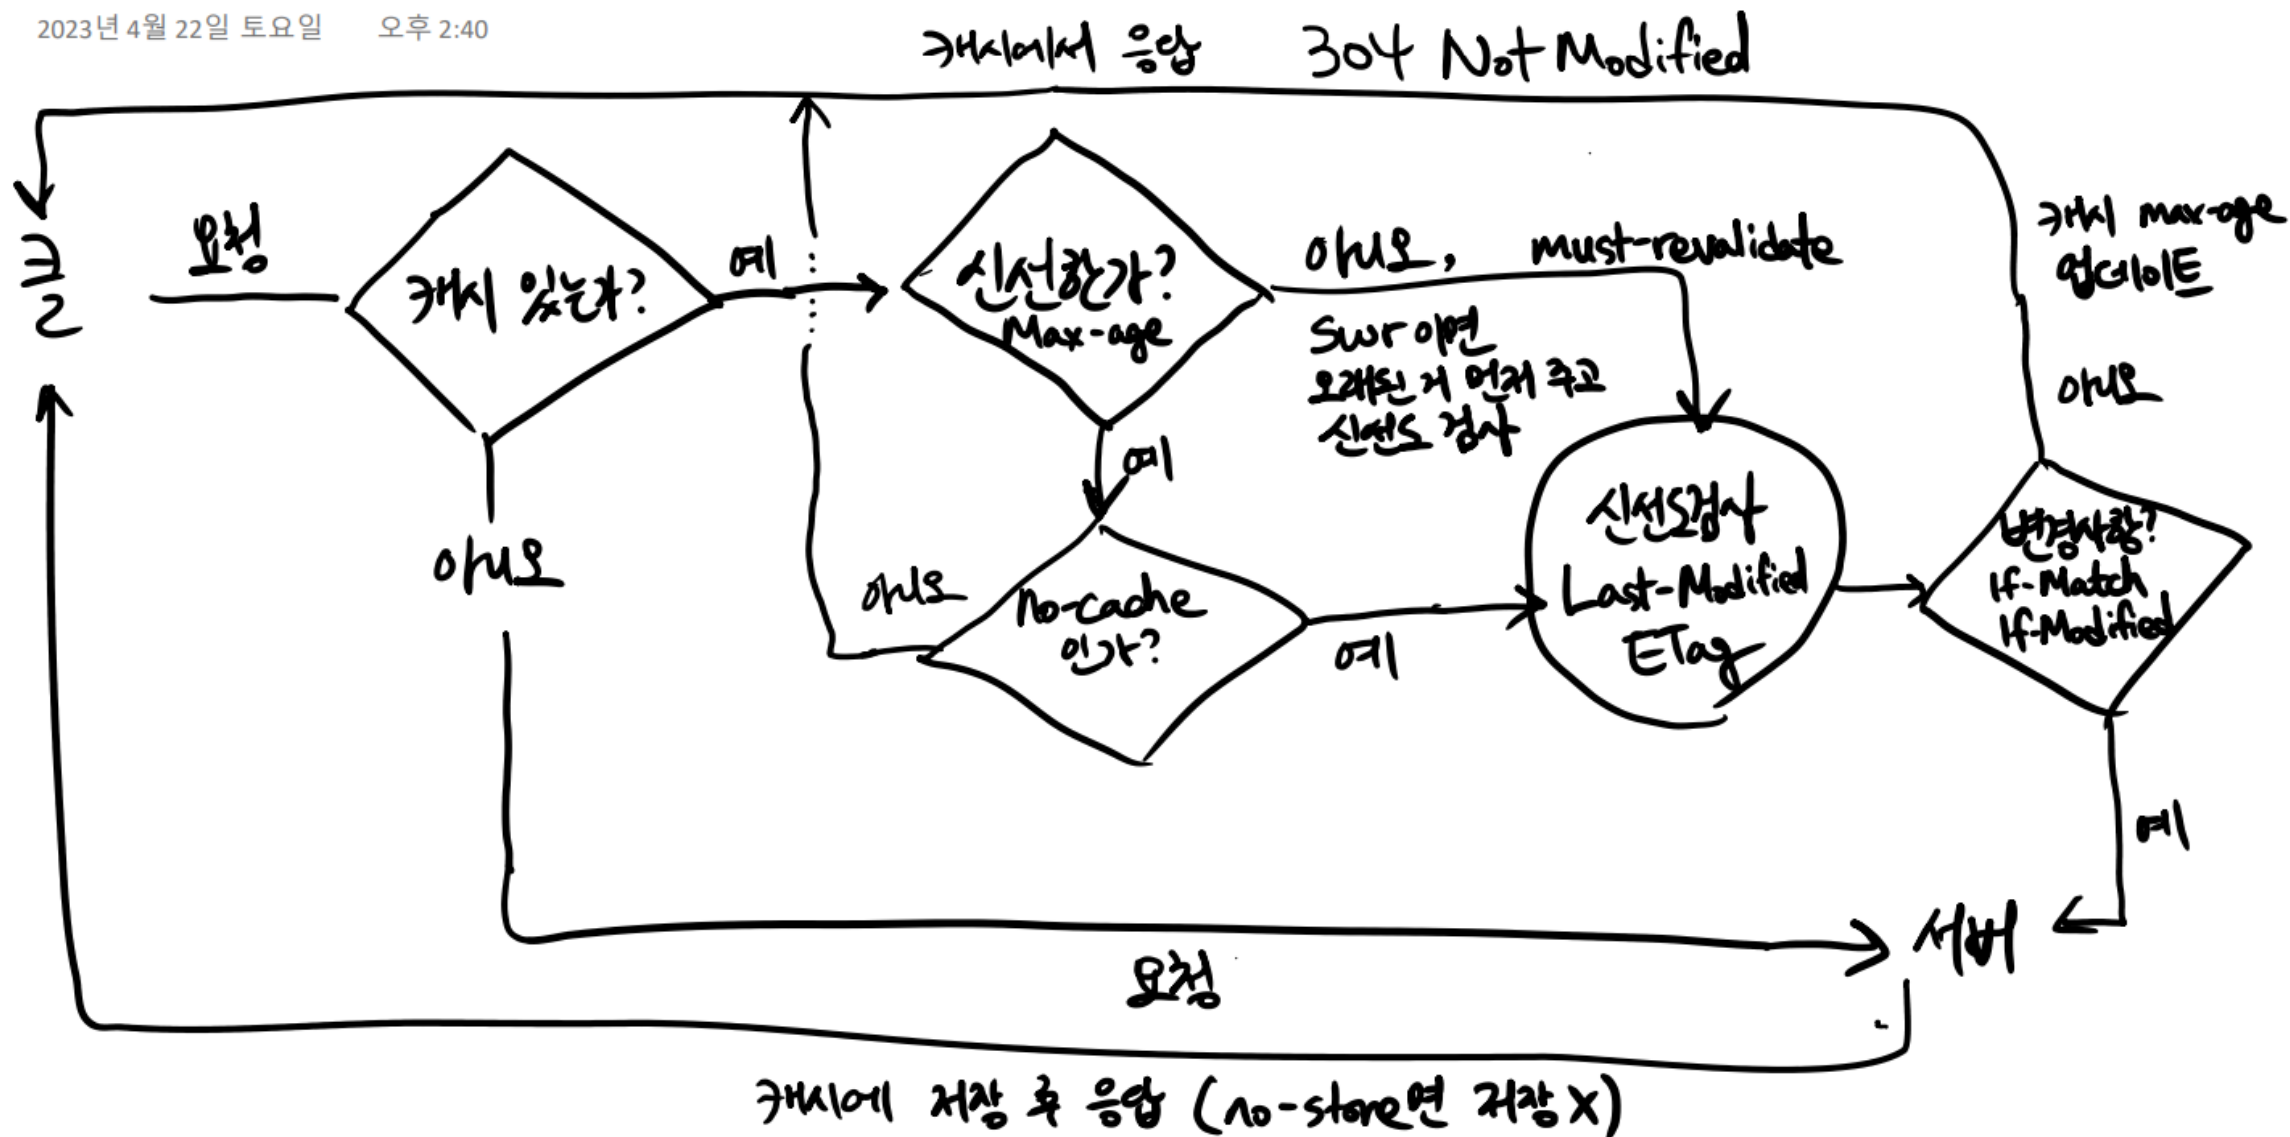 2023년 4월 22일 토요일 오후 2:40
캐시에서 응답 304 Not Modified
클
요청
캐시 있는가?
예
아니오
신선한가?
Max-age
예
아니오, must-revalidate
swr 이면
오래된 거 먼저 주고
신선도 검사
캐시 max-age
업데이트
아니오
no-cache
인가?
아니오
예
신선도검사
Last-Modified
ETag
변경사항?
If-Match
If-Modified
예
서버
요청
캐시에 저장 후 응답 (no-store면 저장X)